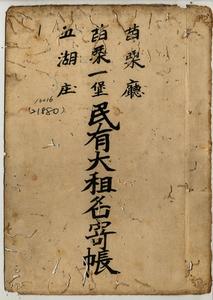 苗栗廳
苗栗一堡
五湖庄
民有大租名寄帳
(1880)